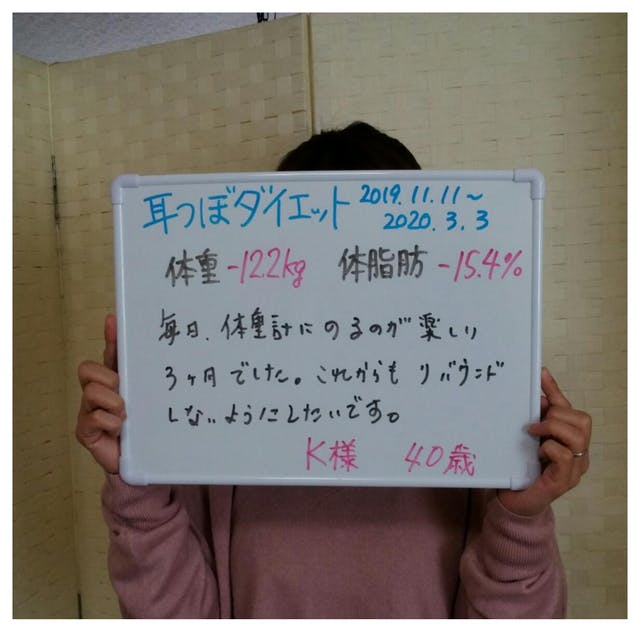 耳つぼダイエット 2019.11.11~
2020.3.3
体重 -12.2kg 体脂肪 -15.4%
毎日、体重計にのるのが楽しい
3ヶ月でした。これからもリバウンド
しないようにしたいです。
K様 40歳